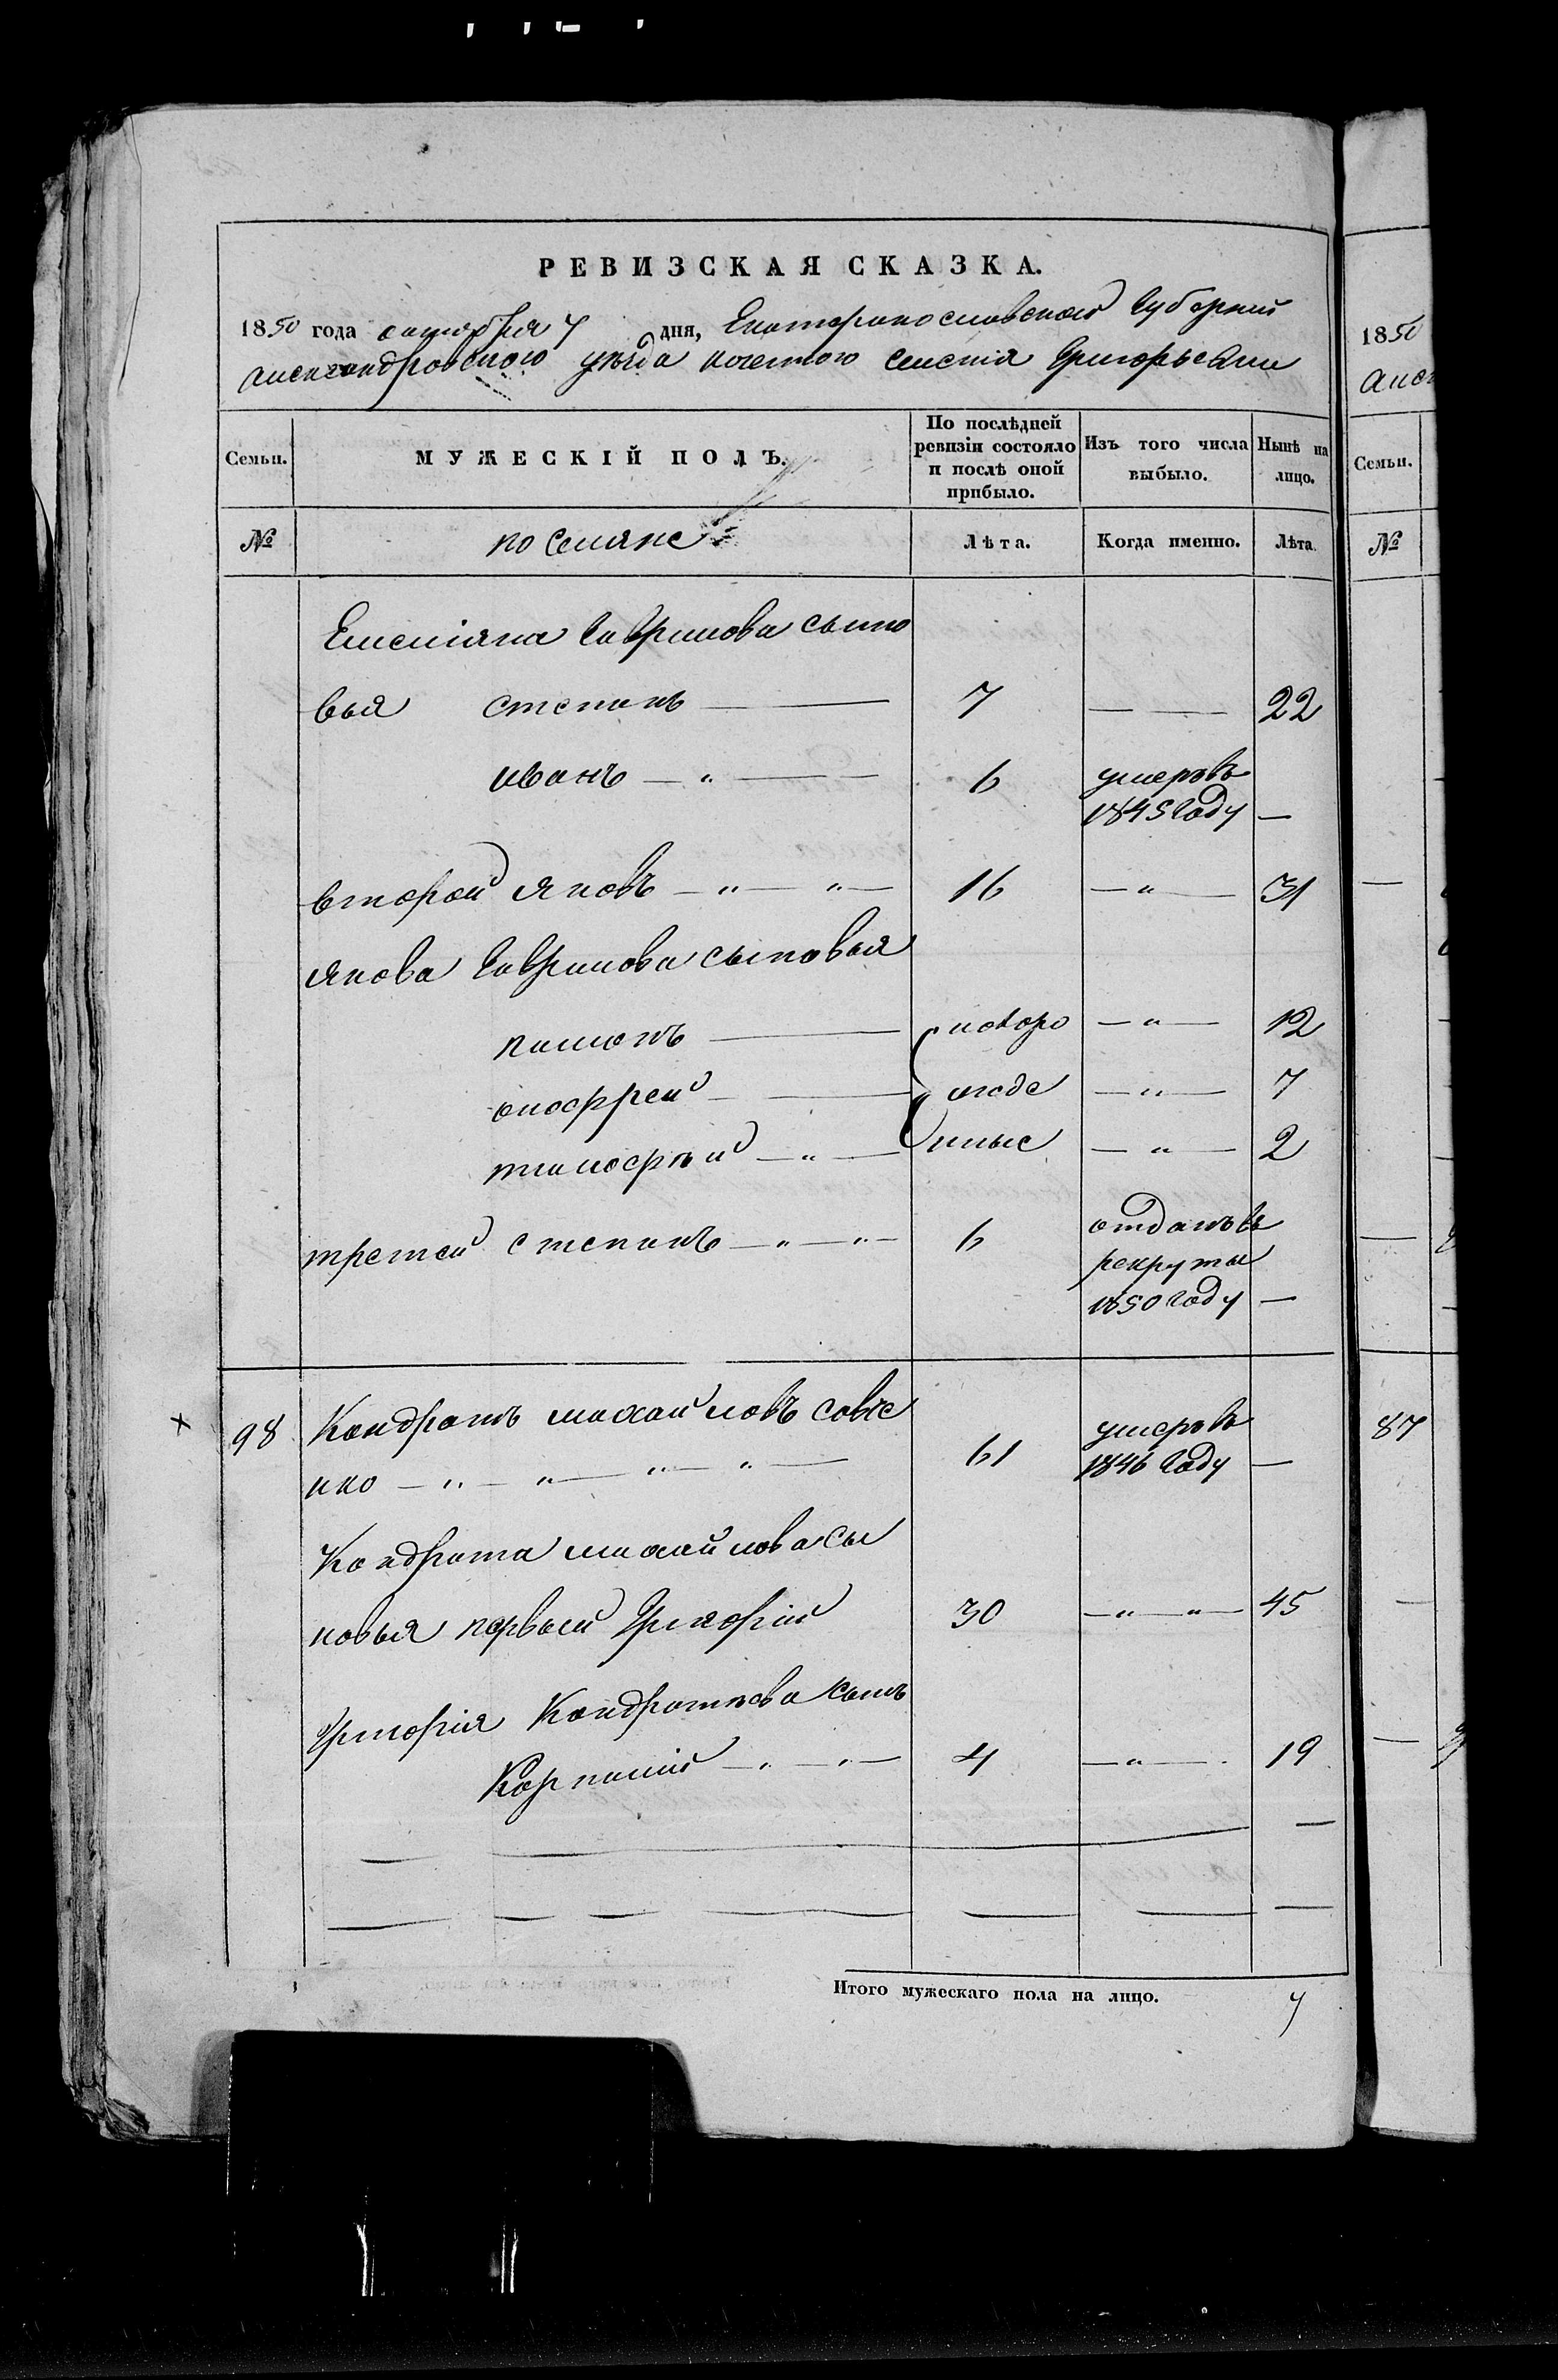 РЕВИЗСКАЯ СКАЗКА.
1850 года октября 7 дня, Екатеринославской Губернии
Александровского уезда казенного селения Григорьевки
Семьи. МУЖЕСКІЙ ПОЛЪ. По послѣдней ревизіи состояло и послѣ оной прибыло. Изъ того числа выбыло. Нынѣ на лицо.
№ поселяне Лѣта. Когда именно. Лѣта.
Емелiяна Гаврилова сыно
вья степанъ 7 22
иванъ 6 умеръ въ
1845 Году
второй яковъ 16 31
якова Гаврилова сыновья
пименъ новоро 12
оноффрей жде 7
тимофѣй нные 2
третей степанъ 6 отданъ въ
рекруты
1850 Году
98 Кондратъ михайловъ савче
нко 61 умеръ въ
1846 Году
Кондрата михайлова сы
новья первый Григорій 30 45
Григорія Кондратьева сынъ
Корнилій 4 19
Итого мужескаго пола на лицо. 7
1850
Алек
Семьи.
№
87